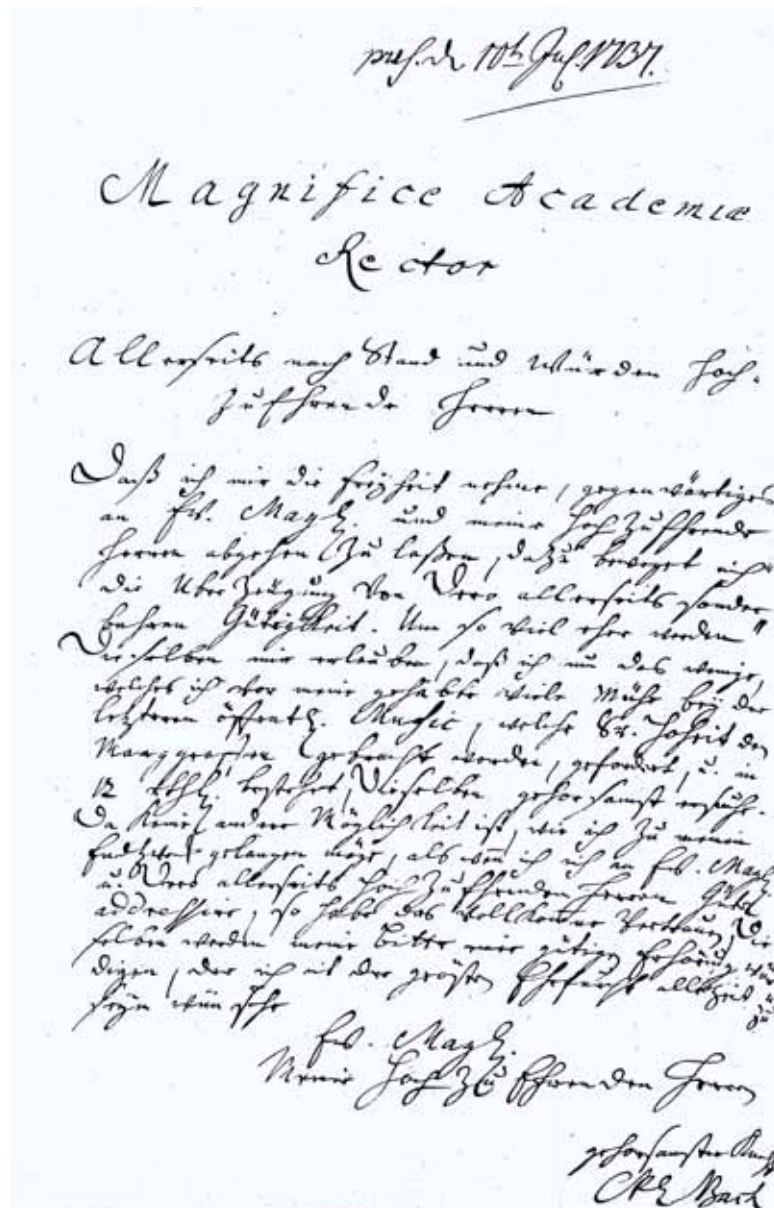 pres. d. 10t. Jul. 1737.
Magnifice Academiæ
Rector
Allerseits nach Stand und Würden Hoch-
zuEhrende Herren
Daß ich mir die Freyheit nehme, gegenwärtiges
an Ew. Magl. und meine HochZuEhrende
Herren abgehen zu laßen, dazu beweget mich
die UberZeugung von Dero allerseits sonder
bahren Gütigkeit. Um so viel eher werden
Dieselben mir erlauben, daß ich um das wenige,
welches ich vor meine gehabte viele Mühe bey der
letzteren öffentl. Music, welche Sr. Hoheit dem
Marggrafen gebracht worden, gefordert, u. in
12 rthl. bestehet, Dieselben gehorsamst ersuche.
Da keine andere Möglichkeit ist, wie ich zu meinem
Endzweck gelangen möge, als wenn ich mich an Ew. Magl.
u. Dero allerseits HochZuEhrenden Herren Güte
addressire, so habe das vollkomne Vertrauen, Die
selben werden meine Bitte einer gütigen Erhörung wür
digen, der ich mit der größten Ehrfurcht allezeit zu
seyn wünsche
Ew. Magl.
Meiner HochZuEhrenden Herren
gehorsamster Knecht
CPE Bach